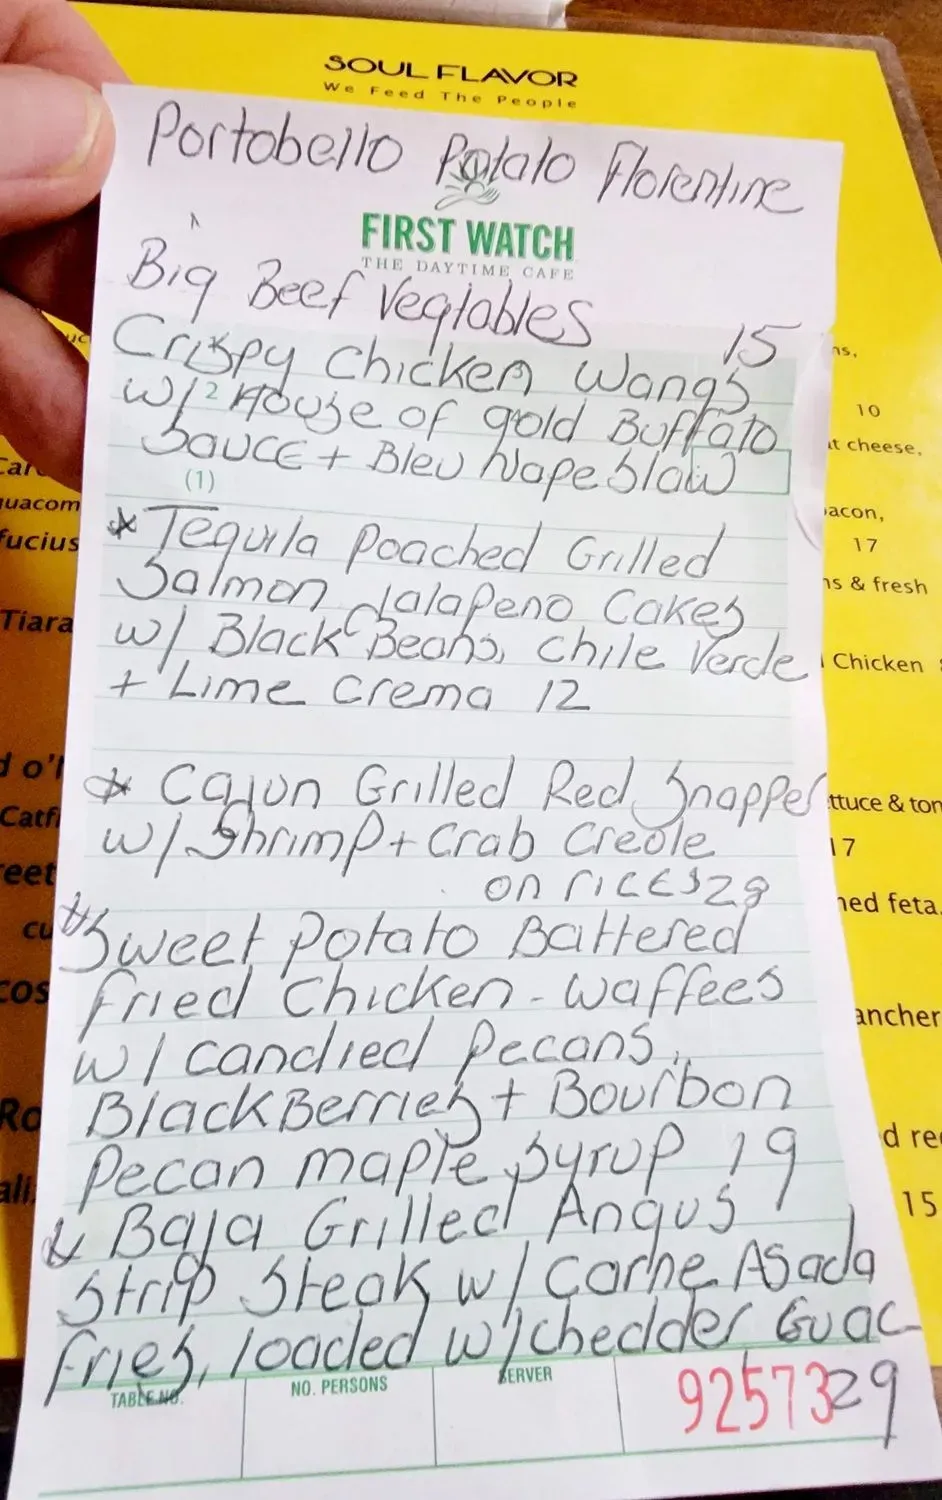 SOUL FLAVOR
We Feed The People
Portobello Potato Florentine
FIRST WATCH
THE DAYTIME CAFE
Big Beef Vegtables
15
Crispy Chicken Wangs
w/ 2 House of gold Buffato
Sauce + Bleu Nape slaw
(1)
* Tequila Poached Grilled
Salmon Jalapeno Cakes
w/ Black Beans, Chile Verde
+ Lime Crema 12
* Cajun Grilled Red Snapper
w/ Shrimp + Crab Creole
on rice 28
* Sweet Potato Battered
Fried Chicken - Waffees
w/ candied Pecans,
BlackBerries + Bourbon
Pecan maple syrup 19
* Baja Grilled Angus
Strip Steak w/ Carne Asada
Fries, loaded w/chedder Guac
29
TABLE NO.
NO. PERSONS
SERVER
92573
ns,
10
t cheese,
acon,
17
ns & fresh
Chicken
ttuce & ton
17
ned feta
ancher
d re
15
uacom
fucius
Tiara
d o'
Catfi
reet
cu
cos
Ro
ali